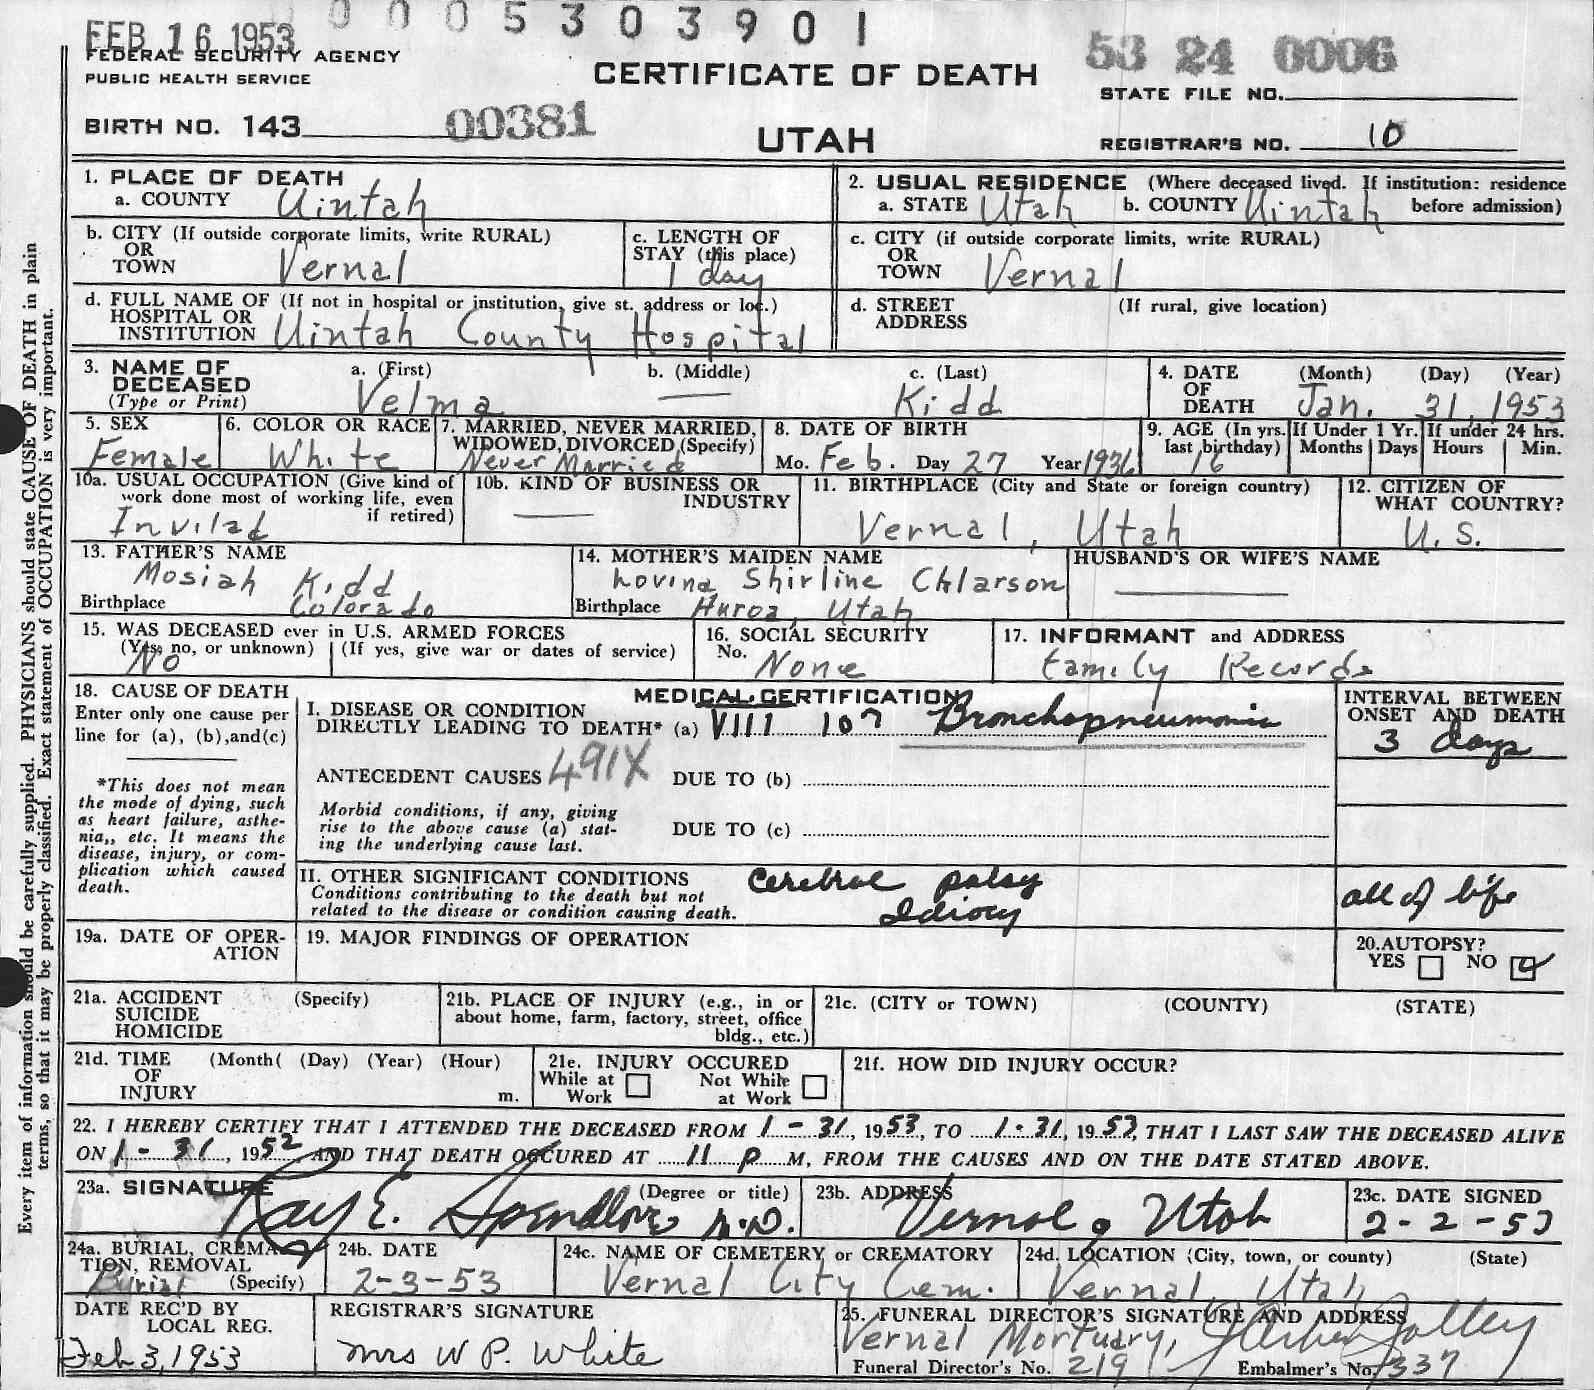 0005303901
FEB 16 1953
FEDERAL SECURITY AGENCY
PUBLIC HEALTH SERVICE
CERTIFICATE OF DEATH
53 24 0006
STATE FILE NO.
BIRTH NO. 143 00381
UTAH
REGISTRAR'S NO. 10
1. PLACE OF DEATH
a. COUNTY Uintah
2. USUAL RESIDENCE (Where deceased lived. If institution: residence
a. STATE Utah b. COUNTY Uintah before admission)
b. CITY (If outside corporate limits, write RURAL)
OR
TOWN Vernal
c. LENGTH OF
STAY (this place)
1 day
c. CITY (if outside corporate limits, write RURAL)
OR
TOWN Vernal
d. FULL NAME OF (If not in hospital or institution, give st. address or loc.)
HOSPITAL OR
INSTITUTION Uintah County Hospital
d. STREET (If rural, give location)
ADDRESS
3. NAME OF
DECEASED
(Type or Print)
a. (First) b. (Middle) c. (Last)
Velma — Kidd
4. DATE (Month) (Day) (Year)
OF
DEATH Jan. 31, 1953
5. SEX
Female
6. COLOR OR RACE
White
7. MARRIED, NEVER MARRIED,
WIDOWED, DIVORCED (Specify)
Never Married
8. DATE OF BIRTH
Mo. Feb. Day 27 Year 1936
9. AGE (In yrs.
last birthday)
16
If Under 1 Yr.
Months Days
If under 24 hrs.
Hours Min.
10a. USUAL OCCUPATION (Give kind of
work done most of working life, even
if retired)
Invilad
10b. KIND OF BUSINESS OR
INDUSTRY
—
11. BIRTHPLACE (City and State or foreign country)
Vernal, Utah
12. CITIZEN OF
WHAT COUNTRY?
U. S.
13. FATHER'S NAME
Mosiah Kidd
Birthplace Colorado
14. MOTHER'S MAIDEN NAME
Lovina Shirline Chlarson
Birthplace Huroa, Utah
HUSBAND'S OR WIFE'S NAME
—
15. WAS DECEASED ever in U.S. ARMED FORCES
(Yes, no, or unknown) (If yes, give war or dates of service)
No
16. SOCIAL SECURITY
No.
None
17. INFORMANT and ADDRESS
family Records
18. CAUSE OF DEATH
Enter only one cause per
line for (a), (b), and(c)
*This does not mean
the mode of dying, such
as heart failure, asthe-
nia,, etc. It means the
disease, injury, or com-
plication which caused
death.
MEDICAL CERTIFICATION
I. DISEASE OR CONDITION
DIRECTLY LEADING TO DEATH* (a) VIII 107 Bronchopneumonia
ANTECEDENT CAUSES 491X DUE TO (b)
Morbid conditions, if any, giving
rise to the above cause (a) stat-
ing the underlying cause last.
DUE TO (c)
INTERVAL BETWEEN
ONSET AND DEATH
3 days
II. OTHER SIGNIFICANT CONDITIONS
Conditions contributing to the death but not
related to the disease or condition causing death.
Cerebral palsy
Idiocy
all of life
19a. DATE OF OPER-
ATION
19. MAJOR FINDINGS OF OPERATION
20. AUTOPSY?
YES NO
21a. ACCIDENT (Specify)
SUICIDE
HOMICIDE
21b. PLACE OF INJURY (e.g., in or
about home, farm, factory, street, office
bldg., etc.)
21c. (CITY or TOWN) (COUNTY) (STATE)
21d. TIME (Month( (Day) (Year) (Hour)
OF
INJURY m.
21e. INJURY OCCURED
While at Not While
Work at Work
21f. HOW DID INJURY OCCUR?
22. I HEREBY CERTIFY THAT I ATTENDED THE DECEASED FROM 1-31, 1953, TO 1-31, 1953, THAT I LAST SAW THE DECEASED ALIVE
ON 1-31, 1952, AND THAT DEATH OCCURED AT 11 P M, FROM THE CAUSES AND ON THE DATE STATED ABOVE.
23a. SIGNATURE (Degree or title)
Ray E. Spendlove M.D.
23b. ADDRESS
Vernal, Utah
23c. DATE SIGNED
2-2-53
24a. BURIAL, CREMA-
TION, REMOVAL
(Specify)
Burial
24b. DATE
2-3-53
24c. NAME OF CEMETERY or CREMATORY
Vernal City Cem.
24d. LOCATION (City, town, or county) (State)
Vernal, Utah
DATE REC'D BY
LOCAL REG.
Feb 3, 1953
REGISTRAR'S SIGNATURE
Mrs W P. White
25. FUNERAL DIRECTOR'S SIGNATURE AND ADDRESS
Vernal Mortuary, Jolley
Funeral Director's No. 219 Embalmer's No. 337
Every item of information should be carefully supplied. PHYSICIANS should state CAUSE OF DEATH in plain
terms, so that it may be properly classified. Exact statement of OCCUPATION is very important.